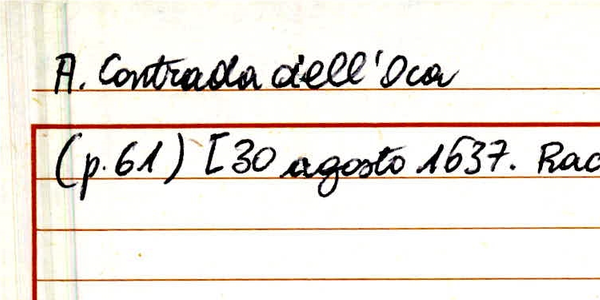 A. Contrada dell'Oca
(p.61) [30 agosto 1637. Rac